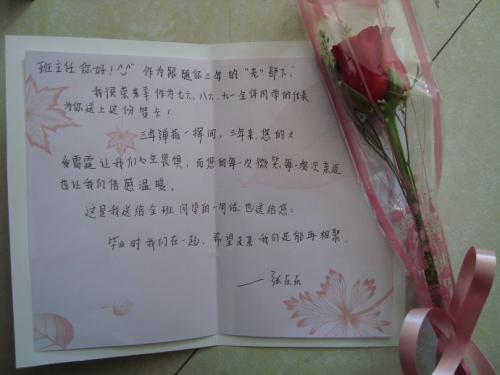 班主任你好！^_^ 作为跟随你三年的“老”部下，
我很荣幸作为七六、八六、九一全体同学的代表
为你送上这份贺卡！
三年弹指一挥间，三年来，您的大
发雷霆让我们心生畏惧，而您的每一次微笑，每一次
也让我们倍感温暖。
这是我送给全班同学的一句话，也送给您：
毕业时我们在一起，希望未来我们还能再相聚．
——张